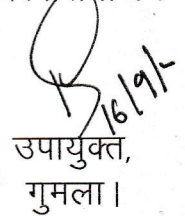 16/9/-
उपायुक्त,
गुमला।